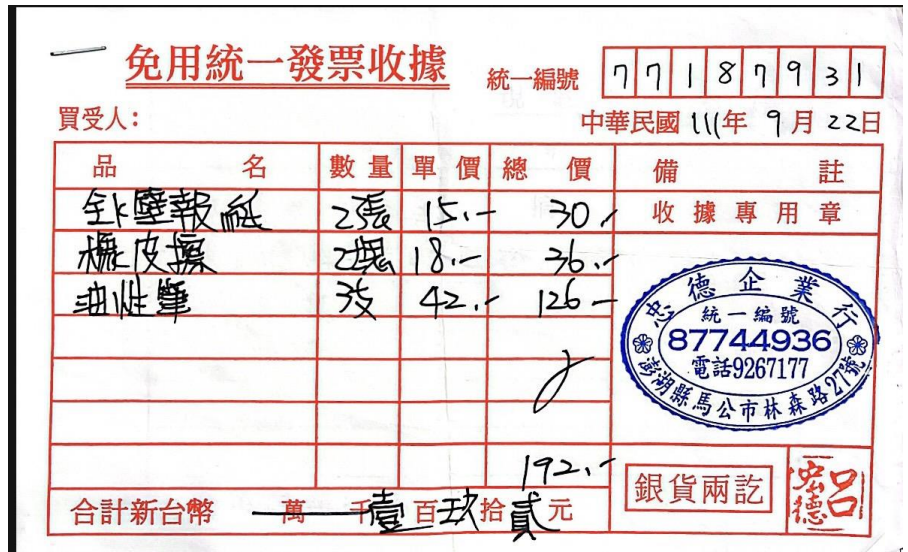 免用統一發票收據
統一編號 77187931
買受人:
中華民國 111年 9月 22日
品名 數量 單價 總價 備註
壁報紙 2張 15.- 30.-
收據專用章
橡皮擦 2塊 18.- 36.-
油性筆 3支 42.- 126-
忠德企業行
統一編號
87744936
電話9267177
澎湖縣馬公市林森路27號
192.-
銀貨兩訖
呂宏德
合計新台幣 萬 千壹百玖拾貳元